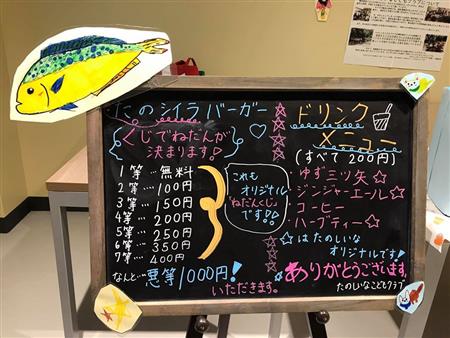 たのシイラバーガー
くじでねだんが
決まります!
1等…無料
2等…100円
3等…150円
4等…200円
5等…250円
6等…350円
7等…400円
なんと…悪等1000円!
いただきます。
これも
オリジナル
"ねだんくじ"
です!
ドリンク
メニュー
(すべて200円)
・ゆず三ツ矢☆
・ジンジャーエール☆
・コーヒー
・ハーブティー☆
☆はたのしいな
オリジナルです!
ありがとうございます。
たのしいなこどもクラブ